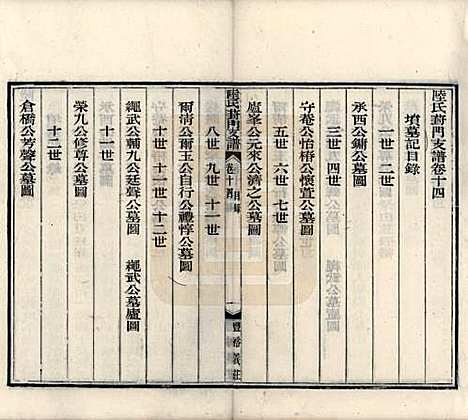 陸氏葑門支譜卷十四
墳墓記目錄
榮九公 一世 二世
承西公鏞公墓圖
三世 四世
守菴公怡椿公懷萱公墓圖
五世 六世 七世
廬峯公元來公濟之公墓圖
陸氏葑門支譜 卷十四 目錄 一 豐裕義莊
八世 九世 十一世
爾清公爾玉公自行公禮惇公墓圖
十世 十一世 十二世
繩武公輔九公廷聲公墓圖 繩武公墓廬圖
十一世
榮九公修尊公墓圖
十二世
倉橋公芳聲公墓圖